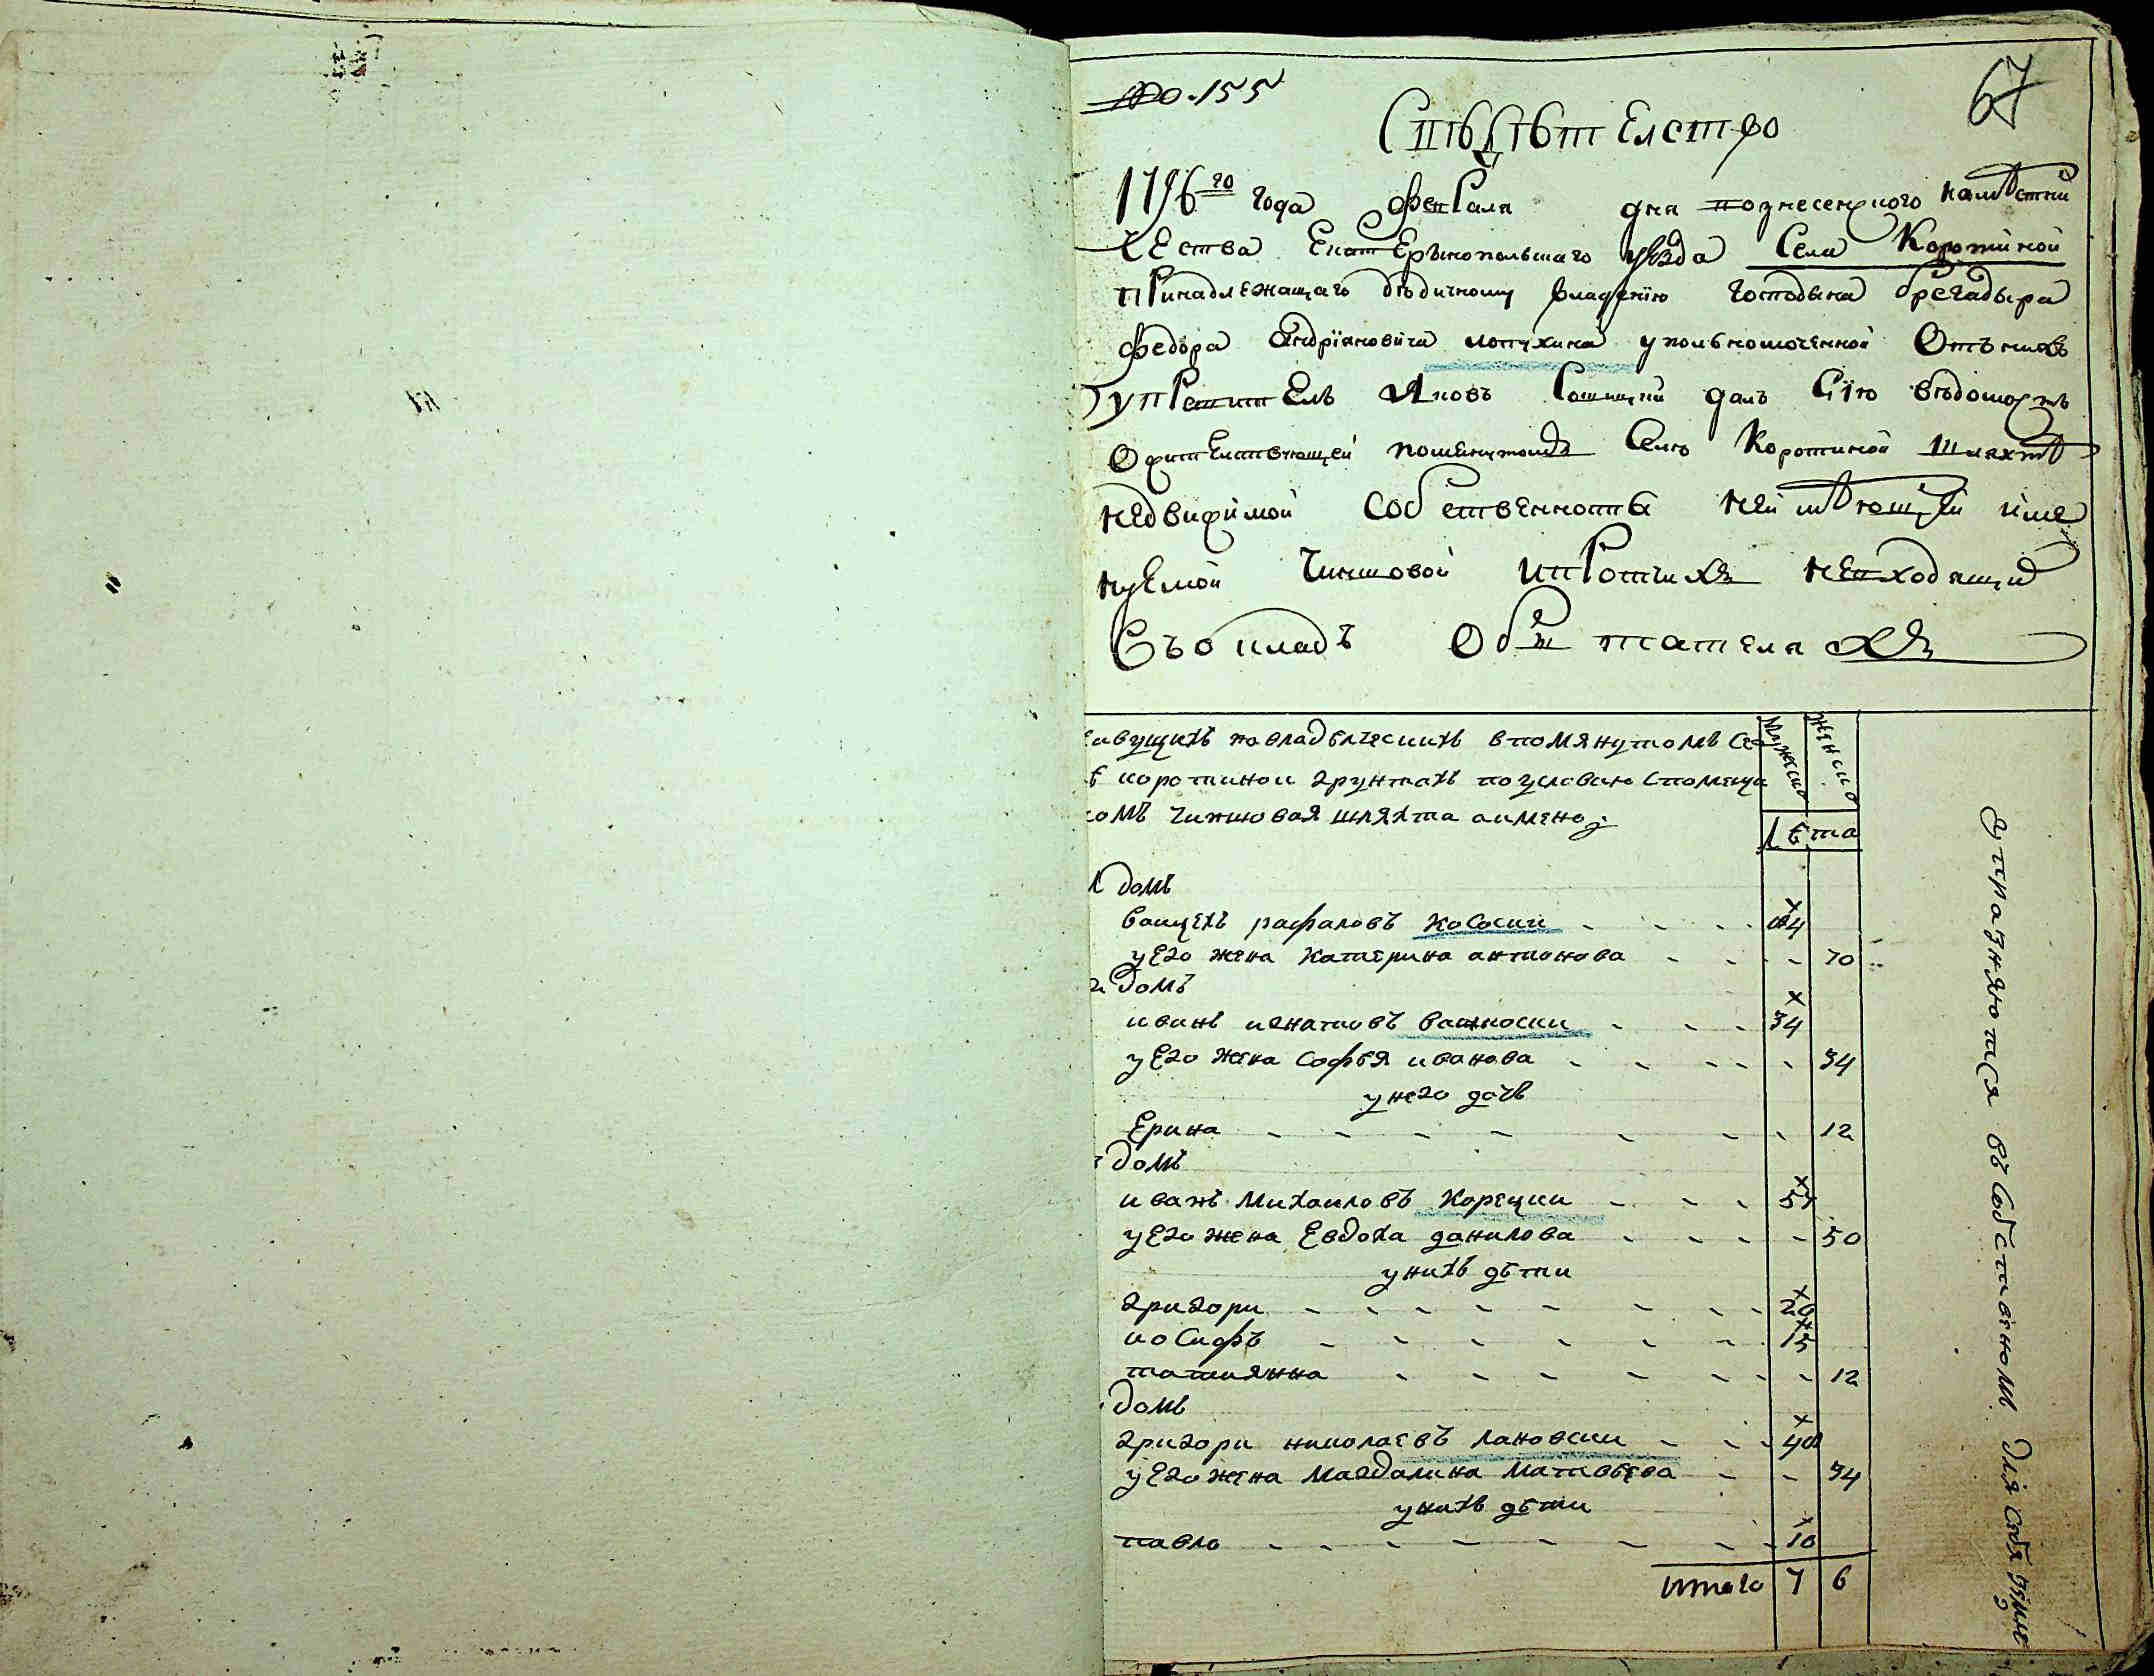 №. 155
67
Свѣдѣтелство
1796го года февраля дня вознесенского намѣстни
чества Екатерынопольшаго уѣзда Села Коротиной
принадлежащаго дѣдичному владѣнїю господына брегадыра
Федора Андріяновича лопухина упольномоченной Отъ нивъ
управитель Яковъ далъ Сїю вѣдомость
О жителствующей помянутомъ Селѣ Коротиной шляхтѣ
недвижимой собственносты неимѣющей име
нуемой Чиншовой ипротчихъ невходящих
Съокладъ Обывателяхъ
живущихъ навладелческихъ впомянутомъ се
лѣ коротиной грунтахъ поусловию Спомещи
комъ Чиншовая шляхта аимено
Мужеска
Женска
Лѣта
1 домъ
Воицехъ рафаловъ Кососки 84
уЕго жена Катерина антонова 70
2 домъ
иванъ игнатовъ Вашкоски 34
уЕго жена Софья иванова 34
унего дочь
Ерина 12
3 домъ
иванъ Михаиловъ Корецки 54
уЕго жена Евдоха данилова 50
унихъ дѣти
григори 20
иосифъ 15
татиянна 12
домъ
григори николаевъ Лановски 40
уЕго жена Магдалина Матвѣева 34
унихъ дѣти
павло 10
итого 7 6
упражняются въ собственомъ для себя